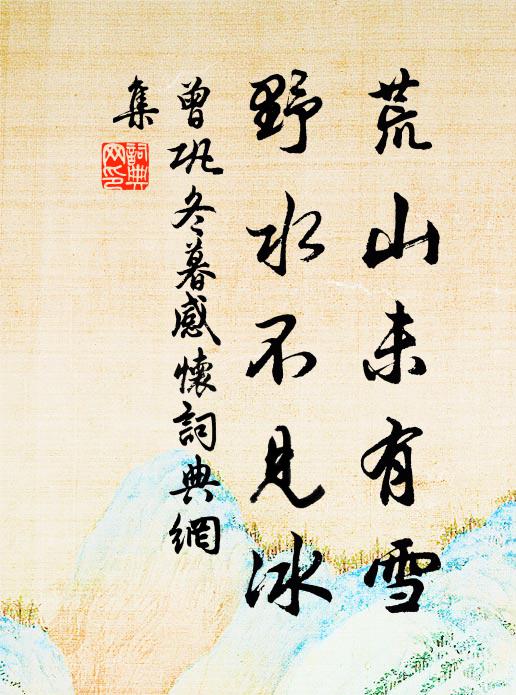 荒山未有雪
野水不見冰
曾巩冬暮感懷詞典網
集
詞典
网印